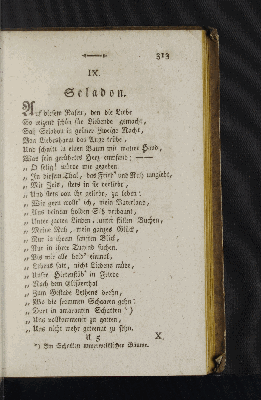 313
IX.
Seladon.
Auf diesen Rasen, den die Liebe
So reizend schön für Liebende gemacht,
Saß Seladon in grüner Zweige Nacht,
Von Liebesharm das Auge trübe,
Und schnitt in einen Baum mit Hand,
Was sein gerührtes Herz empfand: —
„ O selig! würde mir gegeben
„ In diesem Thal, das Fried' und Ruh umzieht,
„ Mit Zoid, stets in sie verliebt,
„ Und stets von ihr geliebt, zu leben:
„ Wie gern wollt' ich, mein Vaterland,
„ Aus deinem holden Schooß verbannt,
„ Unter zarten Linden, unter stillen Buchen,
„ Meine Ruh, mein ganzes Glück,
„ Nur in ihrem sanften Blick,
„ Nur in ihrer Tugend suchen.
„ Bis wir alle beide einmal,
„ Lebens satt, nicht Liebens müde,
„ Unsre Hirtenstäb' in Friede
„ Nach dem Elisäerthal
„ Zum Gestade Lethens drehn,
„ Wo die frommen Schaaren gehn:
„ Dort in amaranten Schatten *)
„ Uns vollkommener zu gatten,
„ Uns nicht mehr getrennt zu sehn.
U 5
X.
*) Im Schatten unverwelklicher Bäume.